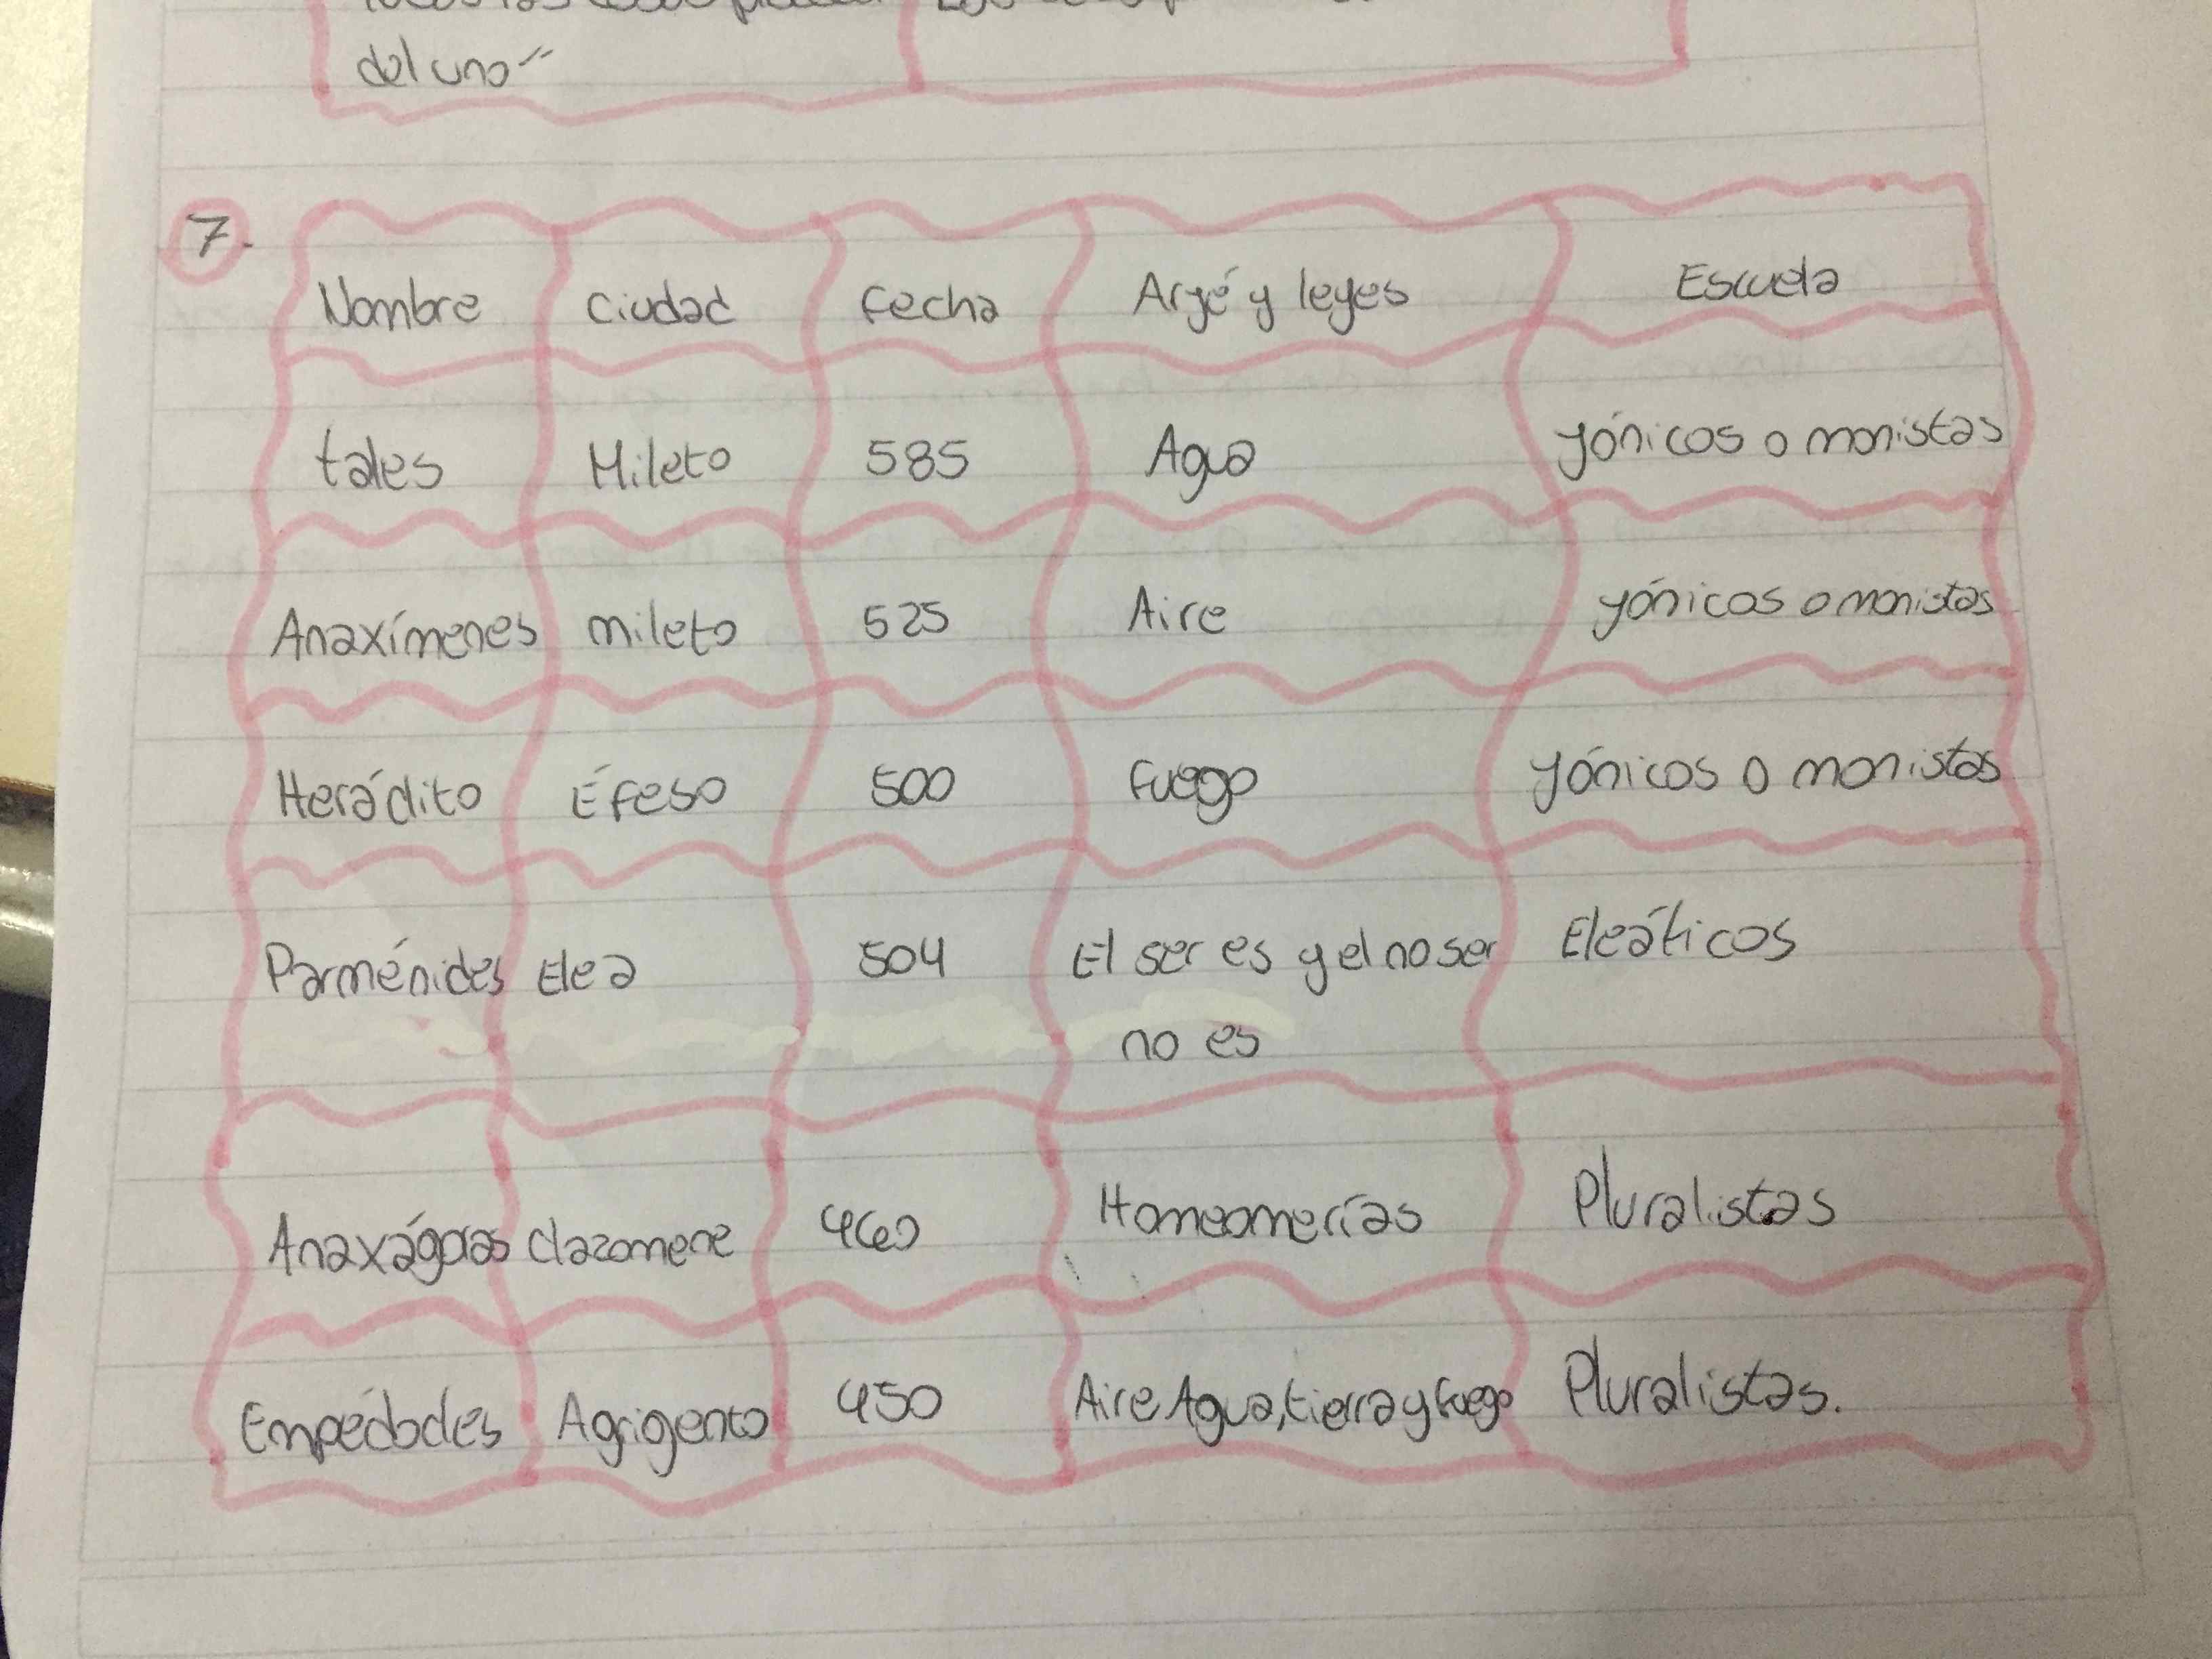 del uno"
7.
Nombre Ciudad Fecha Arjé y leyes Escuela
tales Mileto 585 Agua yónicos o monistas
Anaxímenes mileto 525 Aire yónicos o monistas
Heráclito Éfeso 500 Fuego yónicos o monistas
Parménides Elea 504 El ser es y el no ser Eleáticos
no es
Anaxágoras Clazomene 460 Homeomerías Pluralistas
Empédocles Agrigento 450 Aire Agua, tierra y fuego Pluralistas.